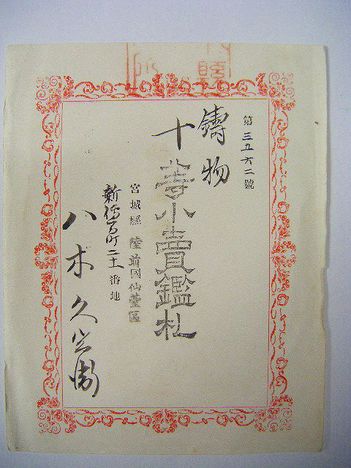 第三五六二號
鑄物
十等小賣鑑札
宮城縣陸前國仙臺區
新傳馬町二十二番地
八木久